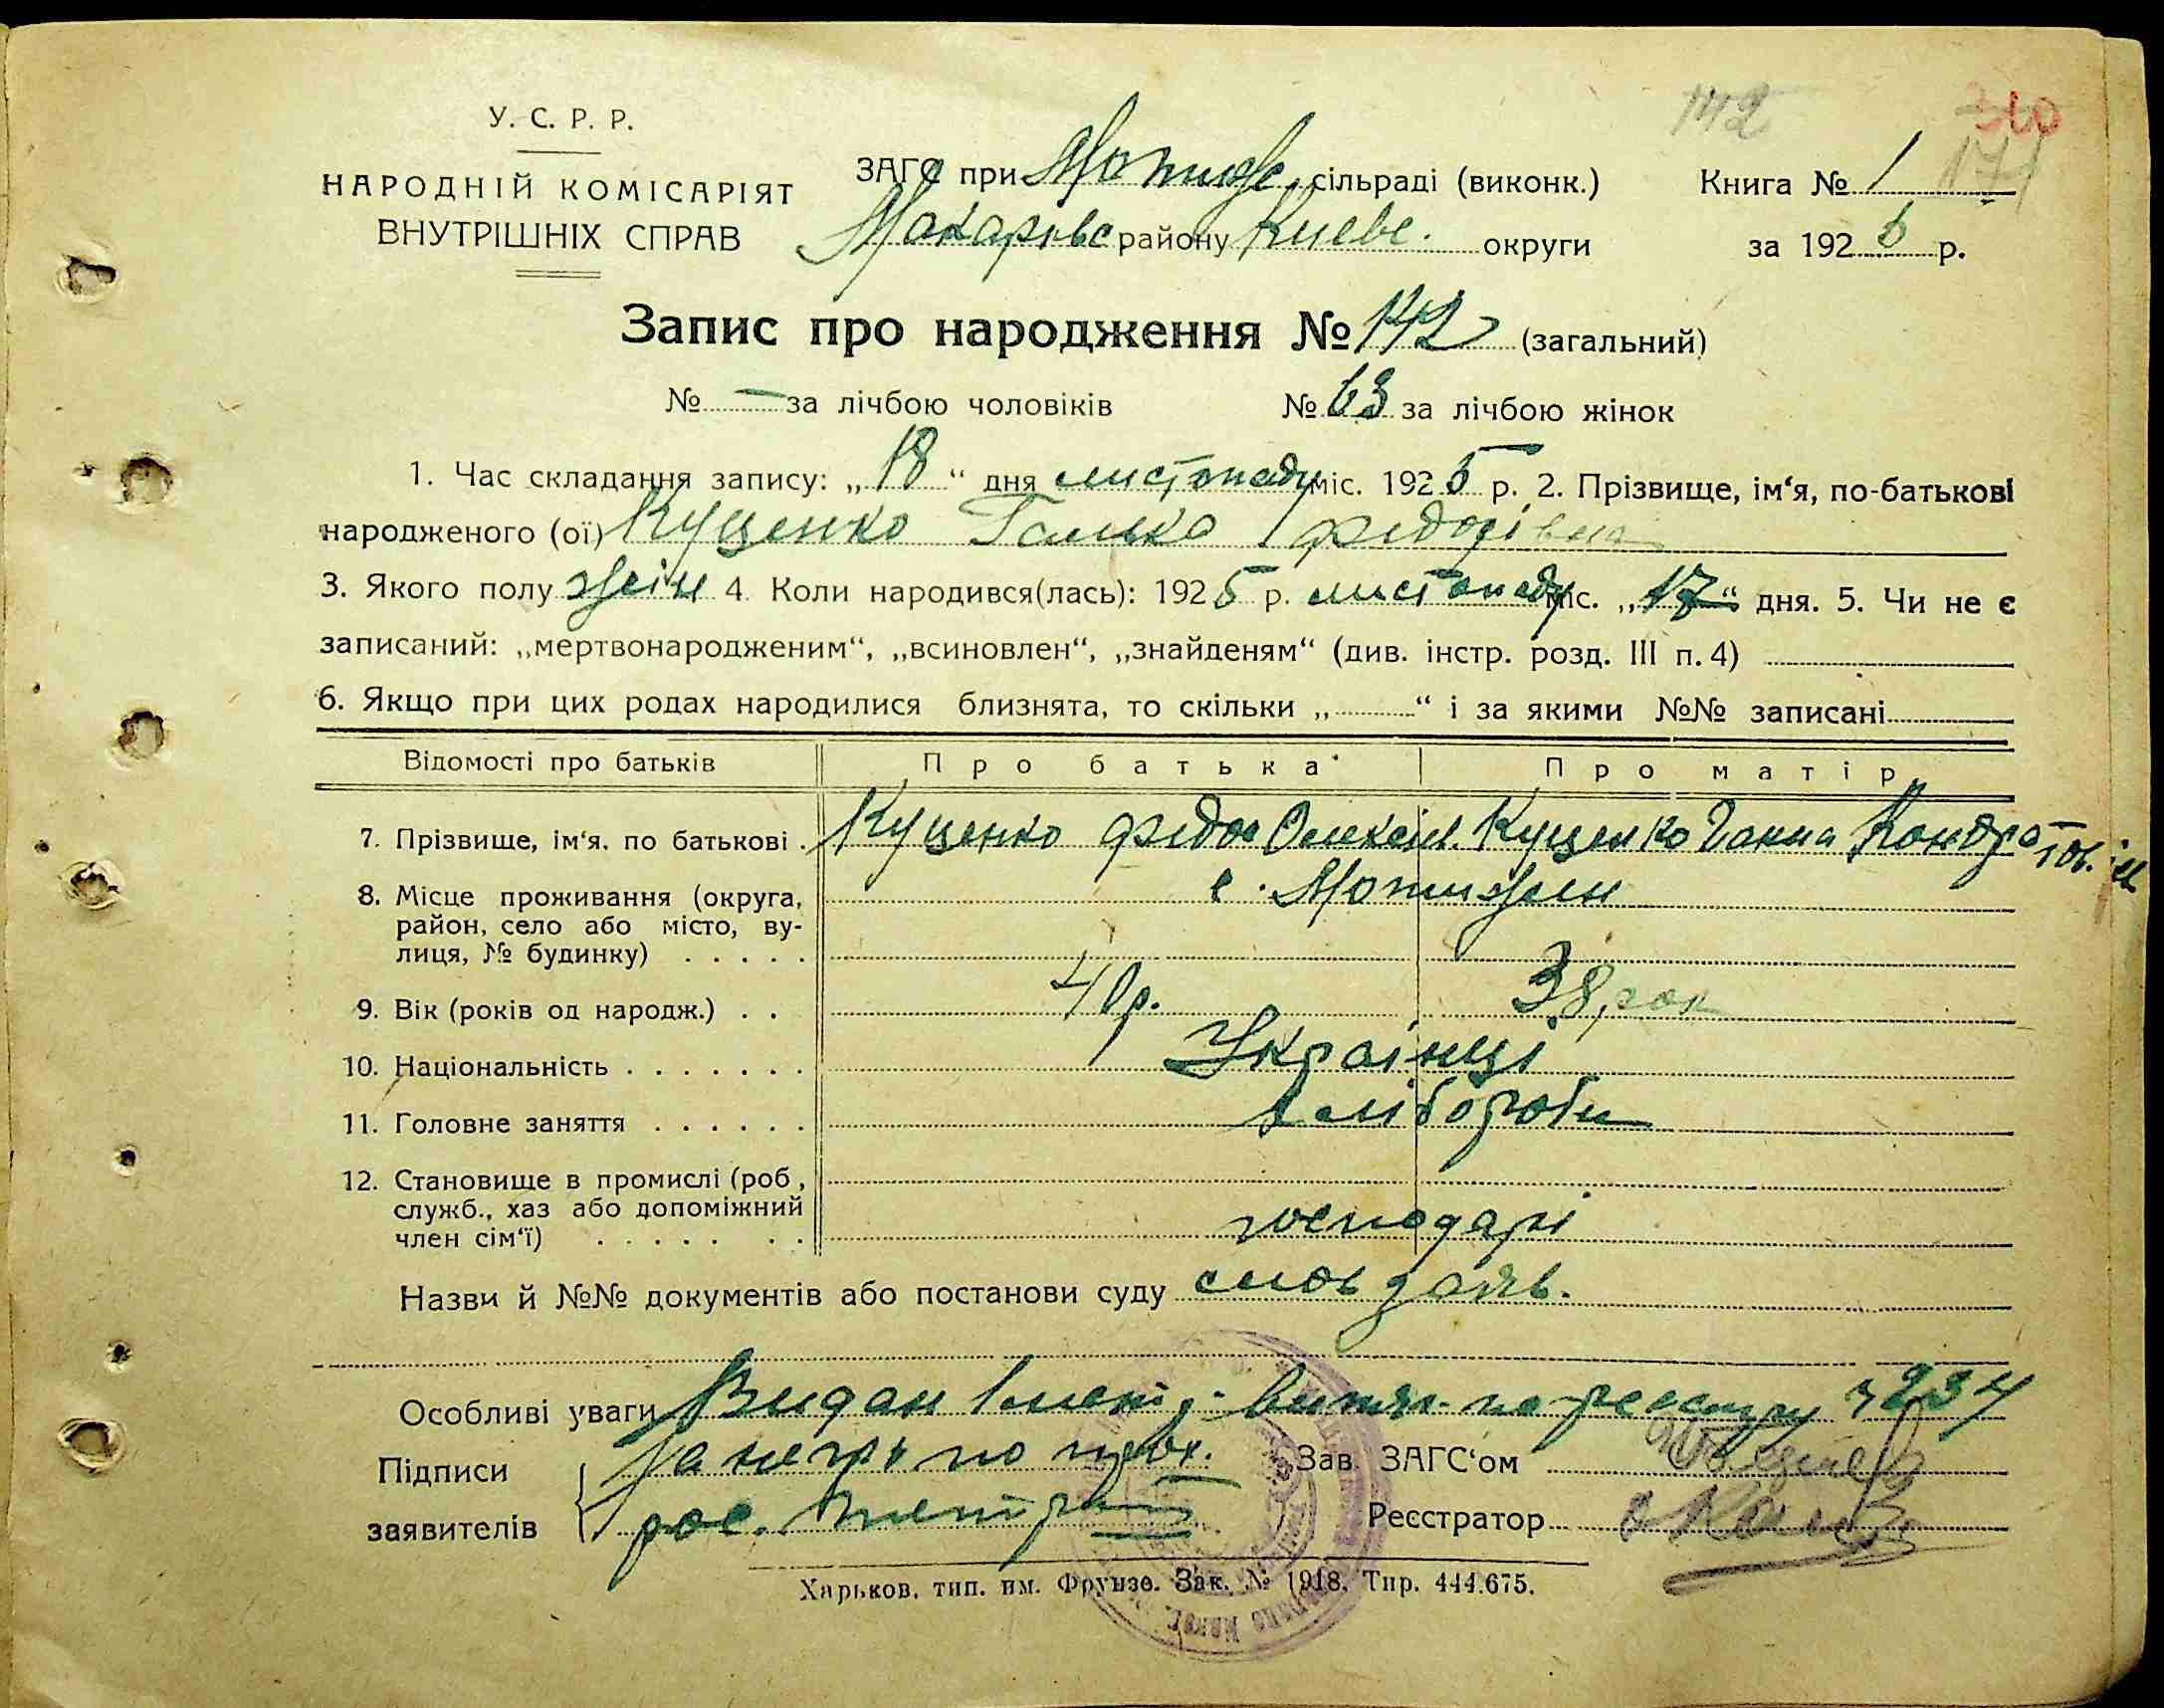 142
310
171
У. С. Р. Р.
НАРОДНІЙ КОМІСАРІЯТ
ВНУТРІШНІХ СПРАВ
ЗАГС при Мотиже. сільраді (виконк.)
Макарівс району Києвс. округи
Книга № 1
за 1925 р.
Запис про народження № 142 (загальний)
№ — за лічбою чоловіків № 63 за лічбою жінок
1. Час складання запису: „18“ дня листопаду міс. 1925 р. 2. Прізвище, ім‘я, по-батькові
народженого (ої) Куценко Галька Федосівна
3. Якого полу жін 4. Коли народився(лась): 1925 р. листопаду міс. „17“ дня. 5. Чи не є
записаний: „мертвонародженим“, „всиновлен“, „знайденям“ (див. інстр. розд. III п. 4)
6. Якщо при цих родах народилися близнята, то скільки „ “ і за якими №№ записані
Відомості про батьків Про батька Про матір
7. Прізвище, ім‘я. по батькові . Куценко Федос Олексів. Куценко Ганна Кондратов.
8. Місце проживання (округа, с. Мотижин
район, село або місто, ву-
лиця, № будинку) . . . . .
9. Вік (років од народж.) . . 40 р. 38, рок
10. Національність . . . . . . . Українці
11. Головне заняття . . . . . . хлібороби
12. Становище в промислі (роб.,
служб., хаз або допоміжний господарі
член сім‘ї) . . . . . . .
Назви й №№ документів або постанови суду слов заяв.
Особливі уваги Видан витяг. по реєстру 234
Підписи за негр. по прох.
заявителів рос.
Зав. ЗАГС‘ом
Реєстратор
Харьков, тип. им. Фрунзе. Зак. № 1918. Тир. 444.675.